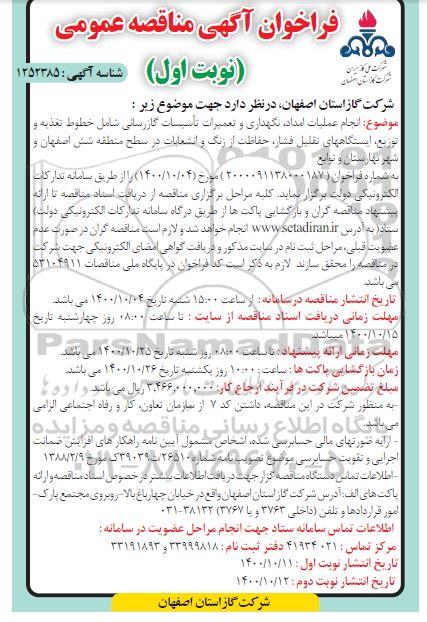 فراخوان آگهی مناقصه عمومی
(نوبت اول)
شناسه آگهی : ۱۲۵۲۳۸۵
شرکت ملی گاز ایران
شرکت گاز استان اصفهان
شرکت گاز استان اصفهان، درنظر دارد جهت موضوع زیر :
موضوع: انجام عملیات امداد، نگهداری و تعمیرات تأسیسات گازرسانی شامل خطوط تغذیه و
توزیع، ایستگاههای تقلیل فشار، حفاظت از زنگ و انشعابات در سطح منطقه شش اصفهان و
شهر بهارستان و توابع
به شماره فراخوان (۲۰۰۰۰۹۱۱۳۸۰۰۰۱۸۷) مورخ (۱۴۰۰/۱۰/۰۴) را از طریق سامانه تدارکات
الکترونیکی دولت برگزار نماید. کلیه مراحل برگزاری مناقصه از دریافت اسناد مناقصه تا ارائه
پیشنهاد مناقصه گران و بازگشایی پاکت ها از طریق درگاه سامانه تدارکات الکترونیکی دولت)
ستاد(به آدرس www.setadiran.ir انجام خواهد شد و لازم است مناقصه گران در صورت عدم
عضویت قبلی، مراحل ثبت نام در سایت مذکور و دریافت گواهی امضای الکترونیکی جهت شرکت
در مناقصه را محقق سازند لازم به ذکر است کد فراخوان در پایگاه ملی مناقصات ۵۳۱۰۴۹۱۱
می باشد.
تاریخ انتشار مناقصه درسامانه : از ساعت ۱۵:۰۰ شنبه تاریخ ۱۴۰۰/۱۰/۰۴ می باشد.
مهلت زمانی دریافت اسناد مناقصه از سایت : تا ساعت ۰۸:۰۰ روز چهارشنبه تاریخ
۱۴۰۰/۱۰/۱۵ میباشد.
مهلت زمانی ارائه پیشنهاد : تا ساعت ۰۸:۰۰ روز شنبه تاریخ ۱۴۰۰/۱۰/۲۵ می باشد.
زمان بازگشایی پاکت ها : ساعت : ۱۰:۰۰ روز یکشنبه تاریخ ۱۴۰۰/۱۰/۲۶ می باشد.
مبلغ تضمین شرکت در فرآیند ارجاع کار: ۳,۴۶۶,۰۰۰,۰۰۰ ریال می باشد.
-به منظور شرکت در این مناقصه، داشتن کد ۷ از سازمان تعاون، کار و رفاه اجتماعی الزامی
می باشد.
- ارایه صورتهای مالی حسابرسی شده، اشخاص مشمول آیین نامه راهکار های افزایش ضمانت
اجرایی و تقویت حسابرسی موضوع تصویب نامه شماره ۲۶۵۱۰/ت۳۹۰۳۹ک مورخ ۱۳۸۸/۲/۹
-اطلاعات تماس دستگاه مناقصه گزار جهت دریافت اطلاعات بیشتر در خصوص اسناد مناقصه و ارائه
پاکت های الف: آدرس شرکت گاز استان اصفهان واقع در خیابان چهارباغ بالا-روبروی مجتمع پارک-
امور قراردادها و تلفن (داخلی ۳۷۶۳ و یا ۳۷۶۷) ۳۸۱۳۲-۰۳۱
اطلاعات تماس سامانه ستاد جهت انجام مراحل عضویت در سامانه :
مرکز تماس : ۰۲۱-۴۱۹۳۴ دفتر ثبت نام : ۳۳۹۹۹۸۱۸ و ۳۳۱۹۱۸۹۳
تاریخ انتشار نوبت اول : ۱۴۰۰/۱۰/۱۱
تاریخ انتشار نوبت دوم : ۱۴۰۰/۱۰/۱۲
شرکت گاز استان اصفهان